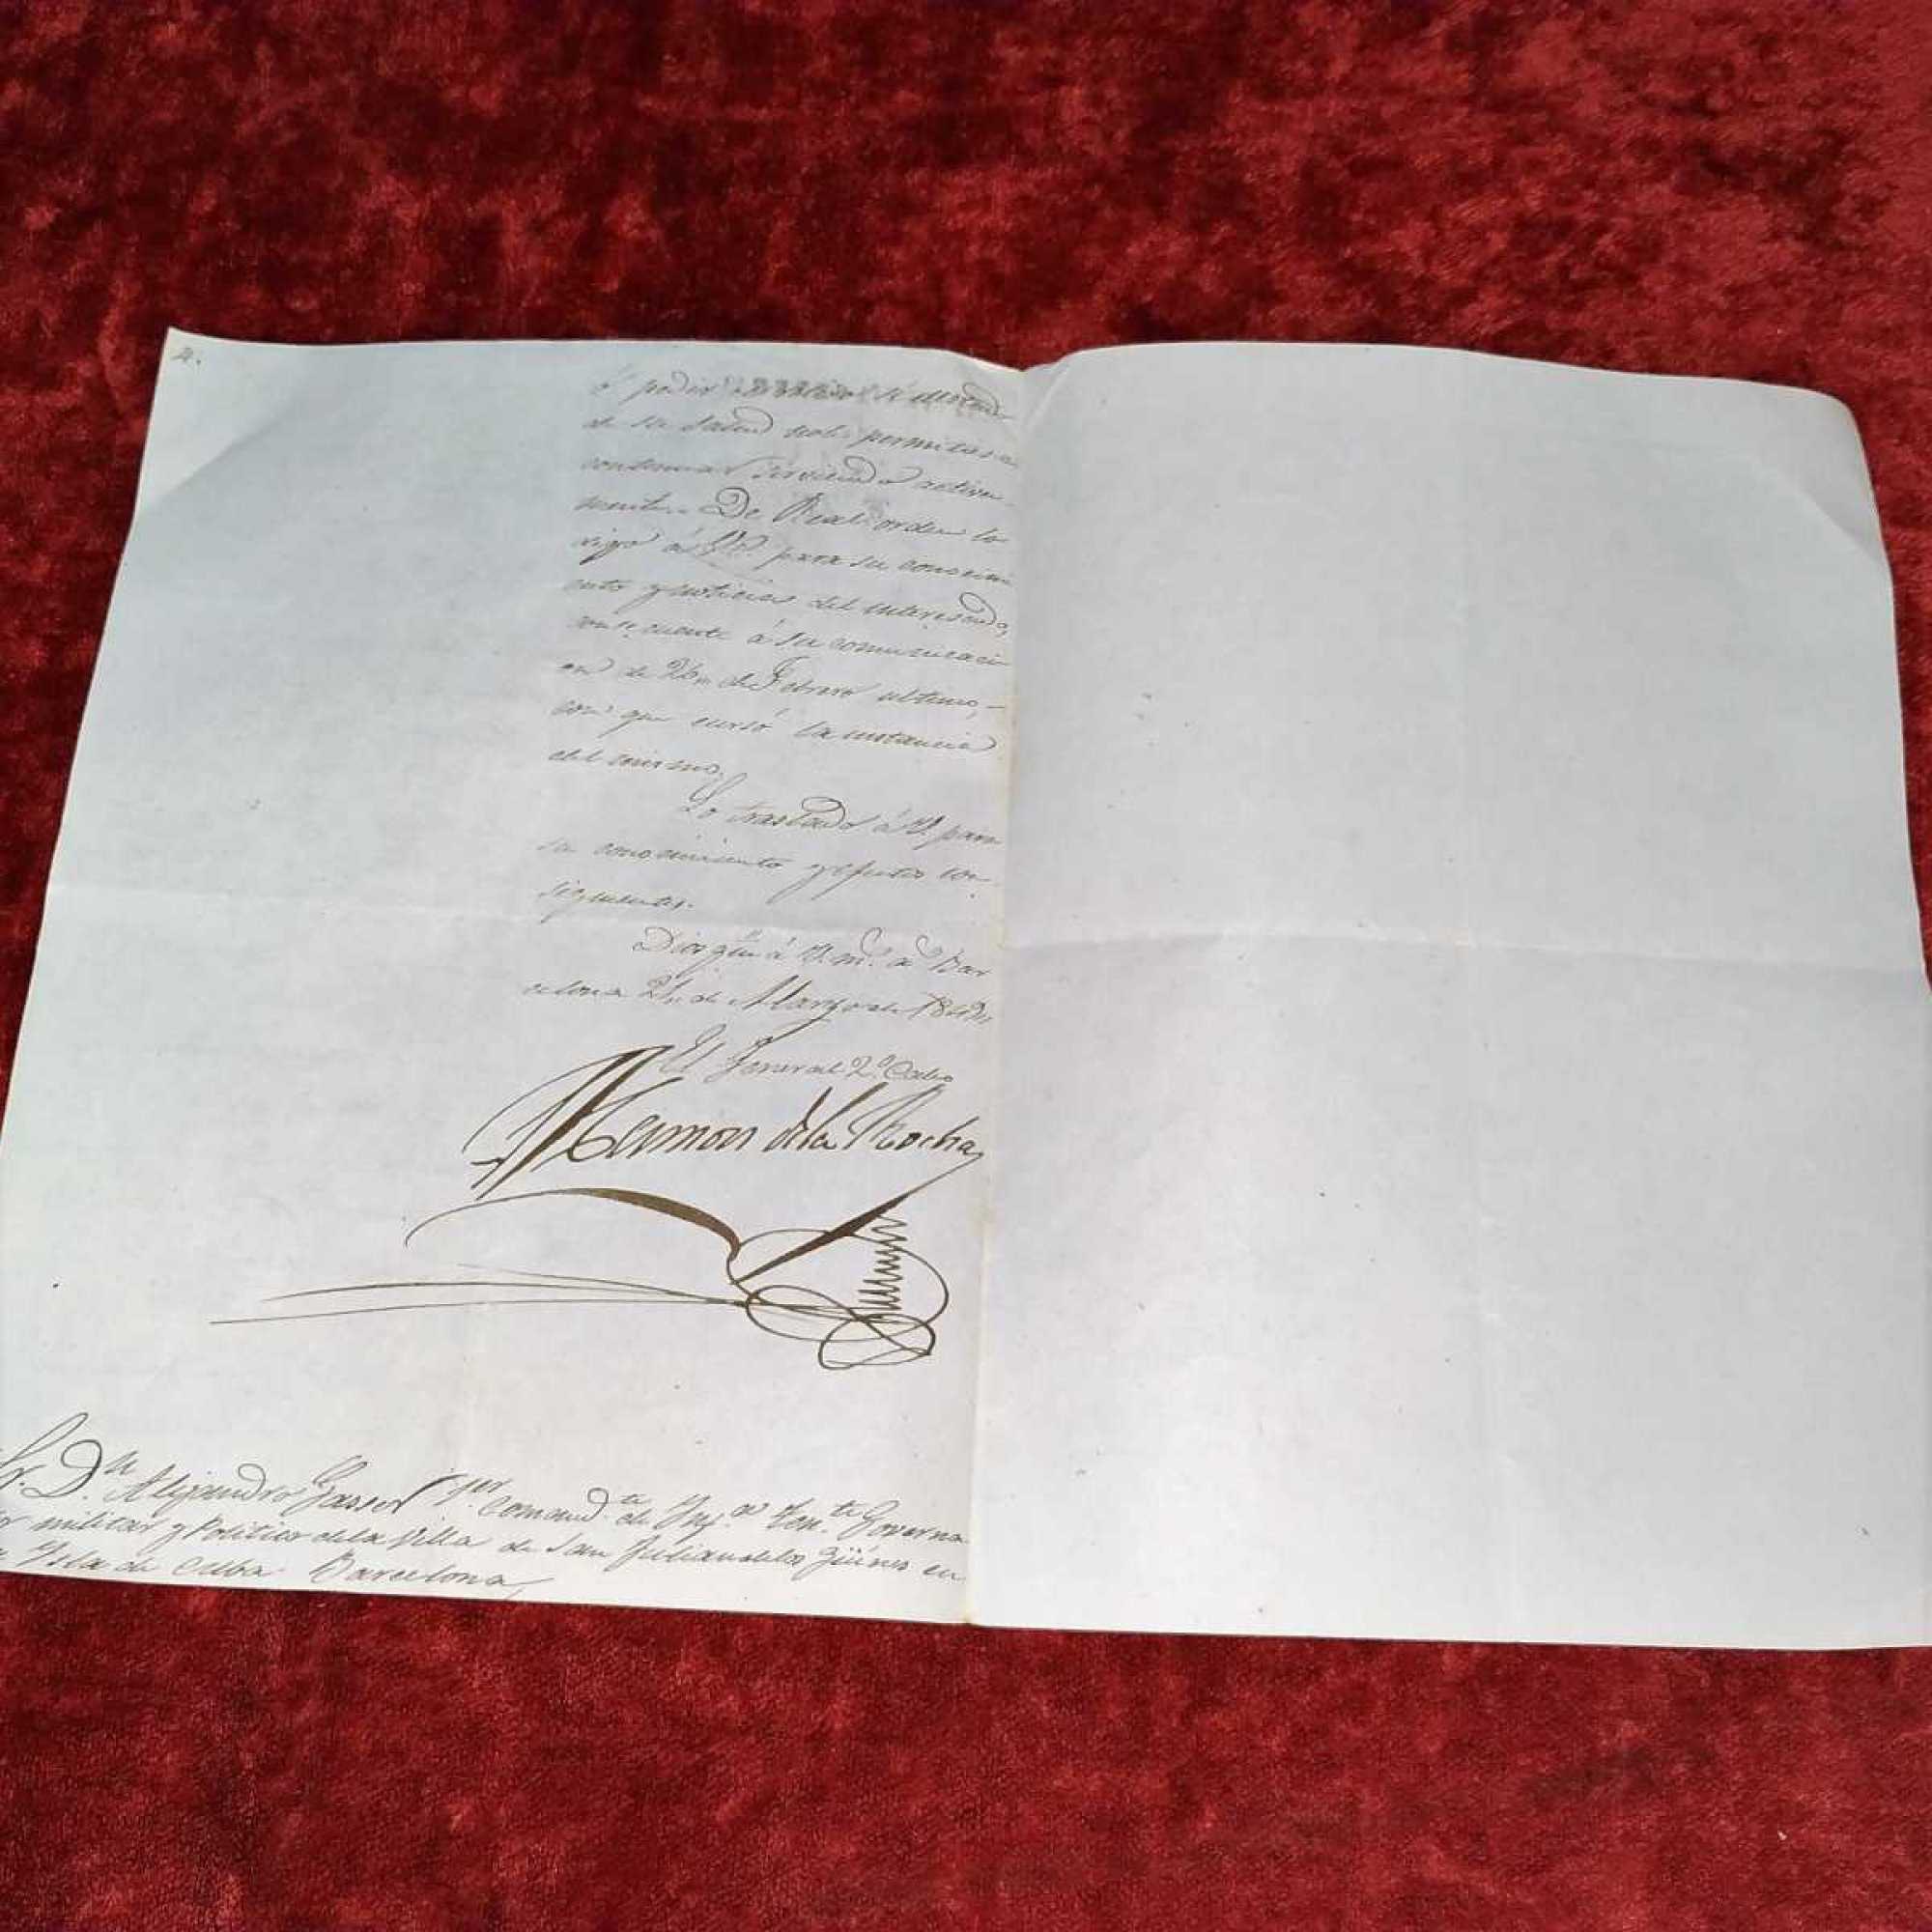 2.
ó pedir su retiro si el estado
de su salud no le permitiese
continuar sirviendo activa-
mente. De Real orden lo
digo á V.E. para su conocimi
ento y noticia del interesado,
consecuente á su comunicaci
on de 26 de Febrero ultimo,
con que cursó la instancia
del mismo.
Lo traslado á V. para
su conocimiento y efectos con-
siguientes.
Dios gue á V. m.s a.s Bar
celona 21 de Marzo de
El General 2.º Cabo
Ramon de la Rocha
Sr. D.n Alejandro Gasset 1.er Comand.te de Inf.a Ten.te Governa
or militar y Politico de la Villa de San Julian de los Güines en
Isla de Cuba. Barcelona